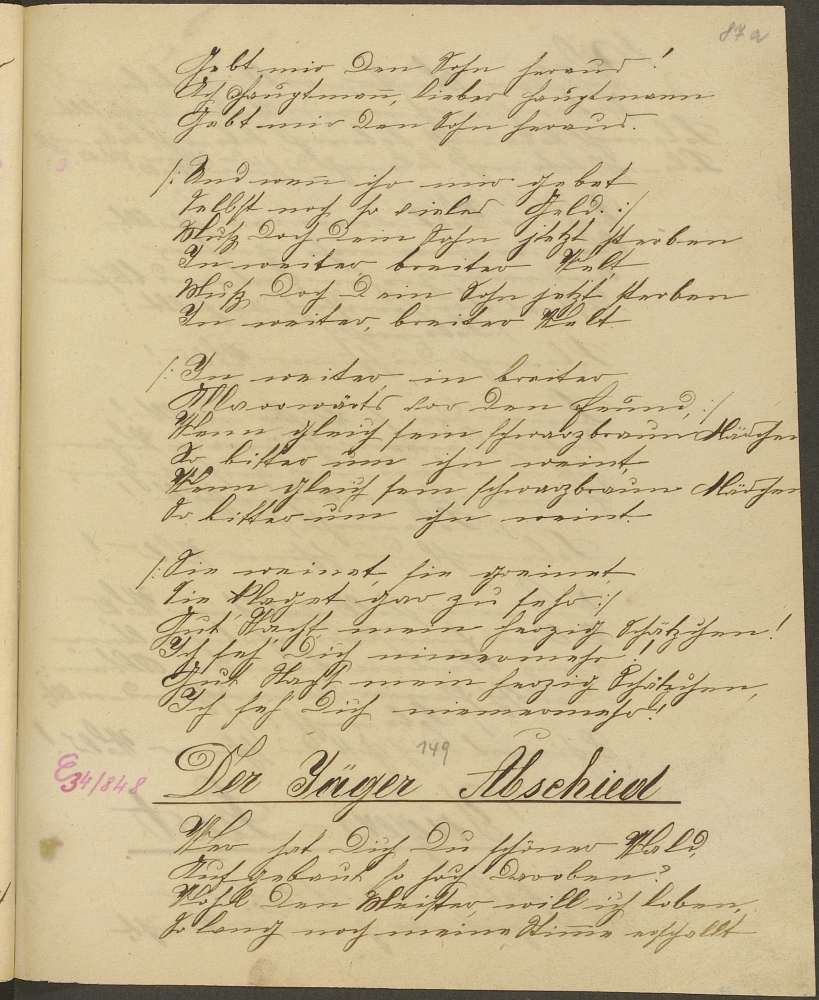 87a
Gebt mir den Sohn heraus!
Ach Hauptmann, lieber Hauptmann
Gebt mir den Sohn heraus.
/: Und wenn ihr mir gebet
Selbst noch so vieles Geld. :/
Muß doch dein Sohn jetzt sterben
In weiter breiter Welt
Muß doch dein Sohn jetzt sterben
In weiter, breiter Welt
/: In weiter in breiter
Allvorwärts vor den Feund, :/
Wenn gleich sein schwarzbraun Mädchen
So bitter um ihn weint,
Wenn gleich sein schwarzbraun Mädchen
So bitter um ihn weint.
/: Sie weinet, sie greinet
Sie klaget gar zu sehr :/
Gut' Nacht mein herzig Schätzchen!
Ich seh' Dich nimmermehr!
Gut Nacht mein herzig Schätzchen,
Ich seh' Dich niemermehr!
149
E34/848
Der Jäger Abschied
Wer hat Dich Du schöner Wald,
Aufgebaut so hoch daroben?
Wohl den Meister will ich loben,
So lang noch meine Stimme erschallt